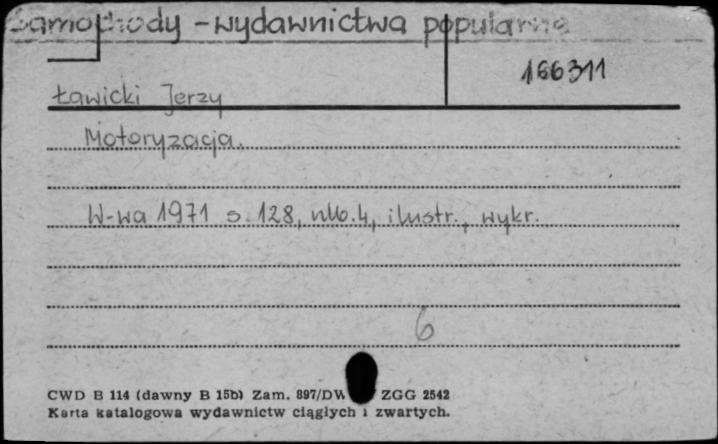 Samochody - wydawnictwa popularne
166311
Ławicki Jerzy
Motoryzacja.
W-wa 1971 s. 128, nlb. 4, ilustr., wykr.
6
CWD B 114 (dawny B 15b) Zam. 897/DW ZGG 2542
Karta katalogowa wydawnictw ciągłych i zwartych.